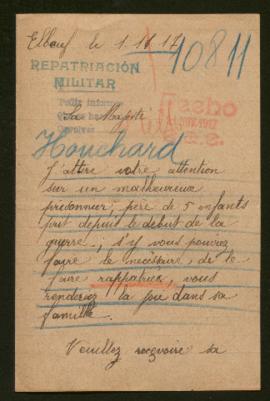 Elbeuf le 1.11.17
10811
REPATRIACIÓN
MILITAR
Sa Majesté
Hecho
1917
Houchard
J'attire votre attention
sur un malheureux
prisonnier; père de 5 enfants
prit depuit le debut de la
guerre; s'y vous pouviez
faire le nécéssaire, de le
faire rappatriés, vous
renderiez la joie dans sa
famille.
Veuillez reçevoire sa